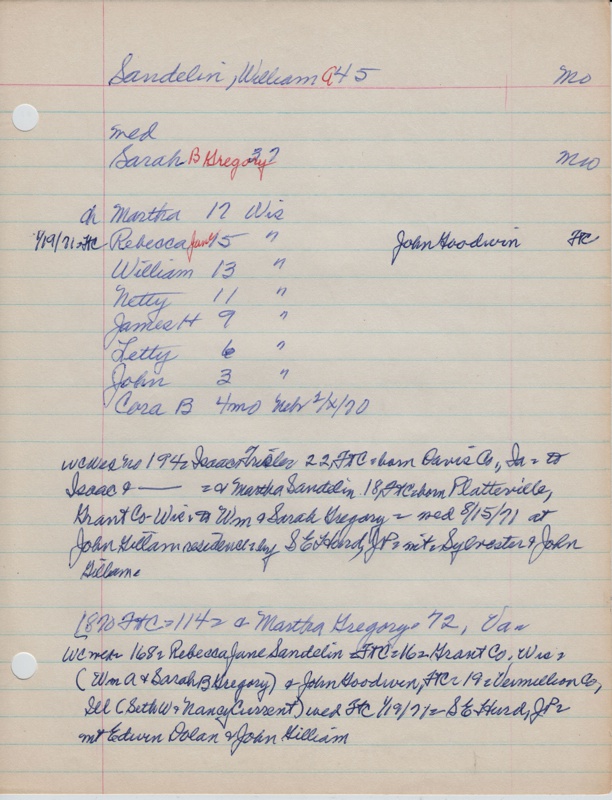 Sandelin, William A 45 Mo
med
Sarah B Gregory 37 Mo
ch Martha 17 Wis
1/19/71=FtC Rebecca Jane 15 " John Goodwin FtC
William 13 "
Netty 11 "
James H 9 "
Letty 6 "
John 3 "
Cora B 4mo Neb 2/x/70
No 194= Isaac 22, FtC= born Davis Co., Ia= to
Isaac & —— = & Martha Sandelin 18, FtC=born Platteville,
Grant Co Wis= to Wm & Sarah Gregory = wed 8/15/71 at
John Gillam residence=by S E Hurd, JP= wit= Sylvester & John
Gillam=
1870 FtC=114= & Martha Gregory= 72, Va=
168= Rebecca Jane Sandelin FtC=16= Grant Co, Wis=
(Wm A & Sarah B Gregory) & John Goodwin, FtC= 19= Vermillion Co,
Ill (Seth W & Nancy Current) wed FtC 1/19/71= S E Hurd, JP=
wit Edwin Dolan & John Gilliam